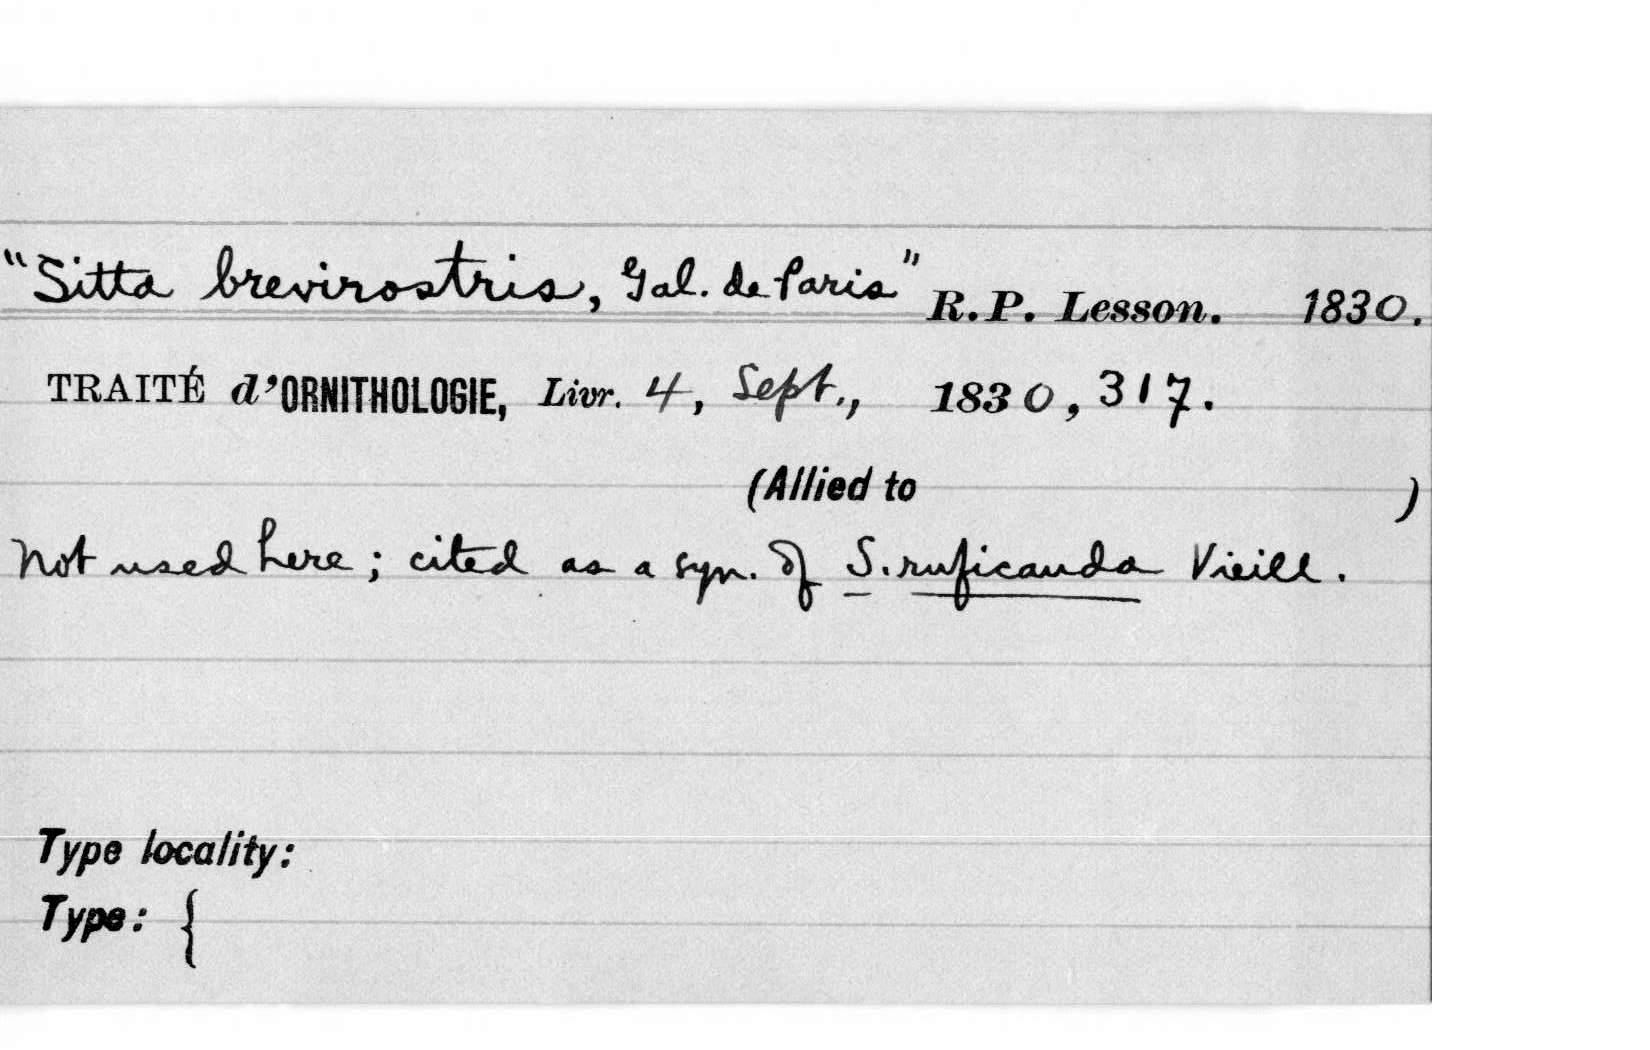 "Sitta brevirostris, Gal. de Paris" R.P. Lesson. 1830.
TRAITÉ d'ORNITHOLOGIE, Livr. 4, Sept., 1830, 317.
(Allied to )
Not used here; cited as a syn. of S. ruficauda Vieill.
Type locality:
Type: {